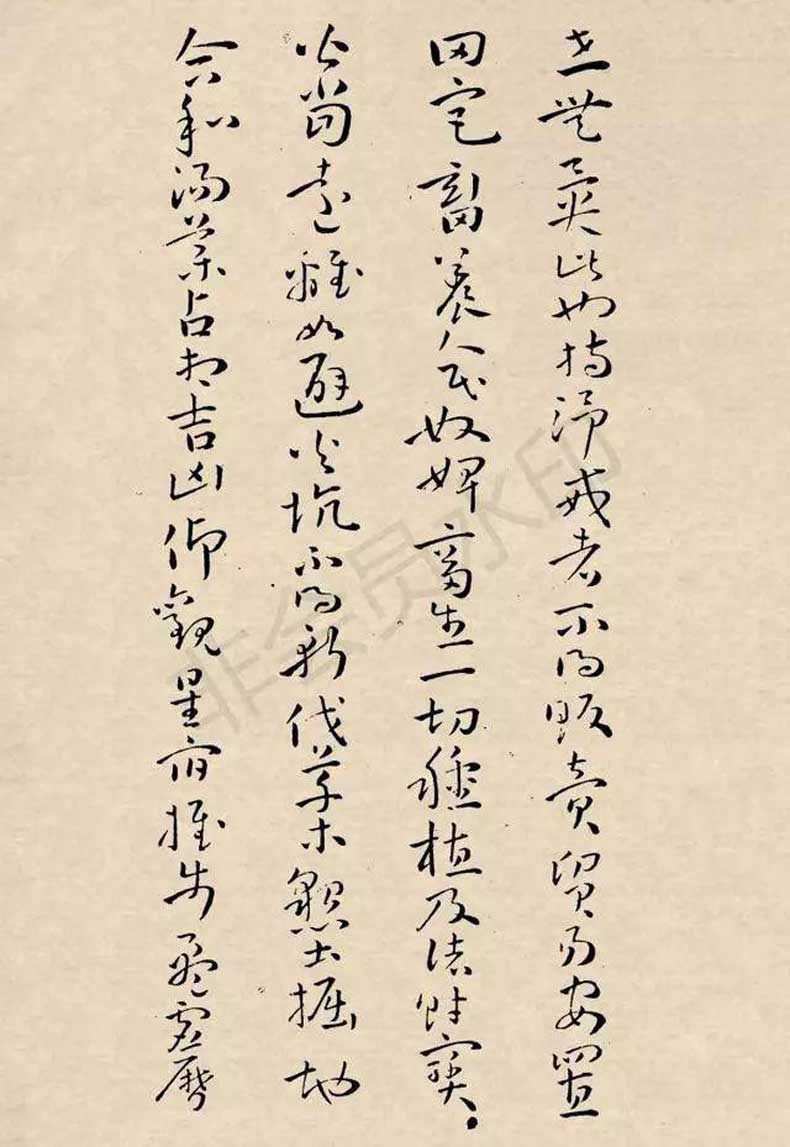 在無異此也持淨戒者不得販賣貿易安置
田宅畜養人民奴婢畜生一切種植及諸財寶
皆當遠離如避火坑不得斬伐草木墾土掘地
合和湯藥占相吉凶仰觀星宿推步盈虛曆
非会员水印